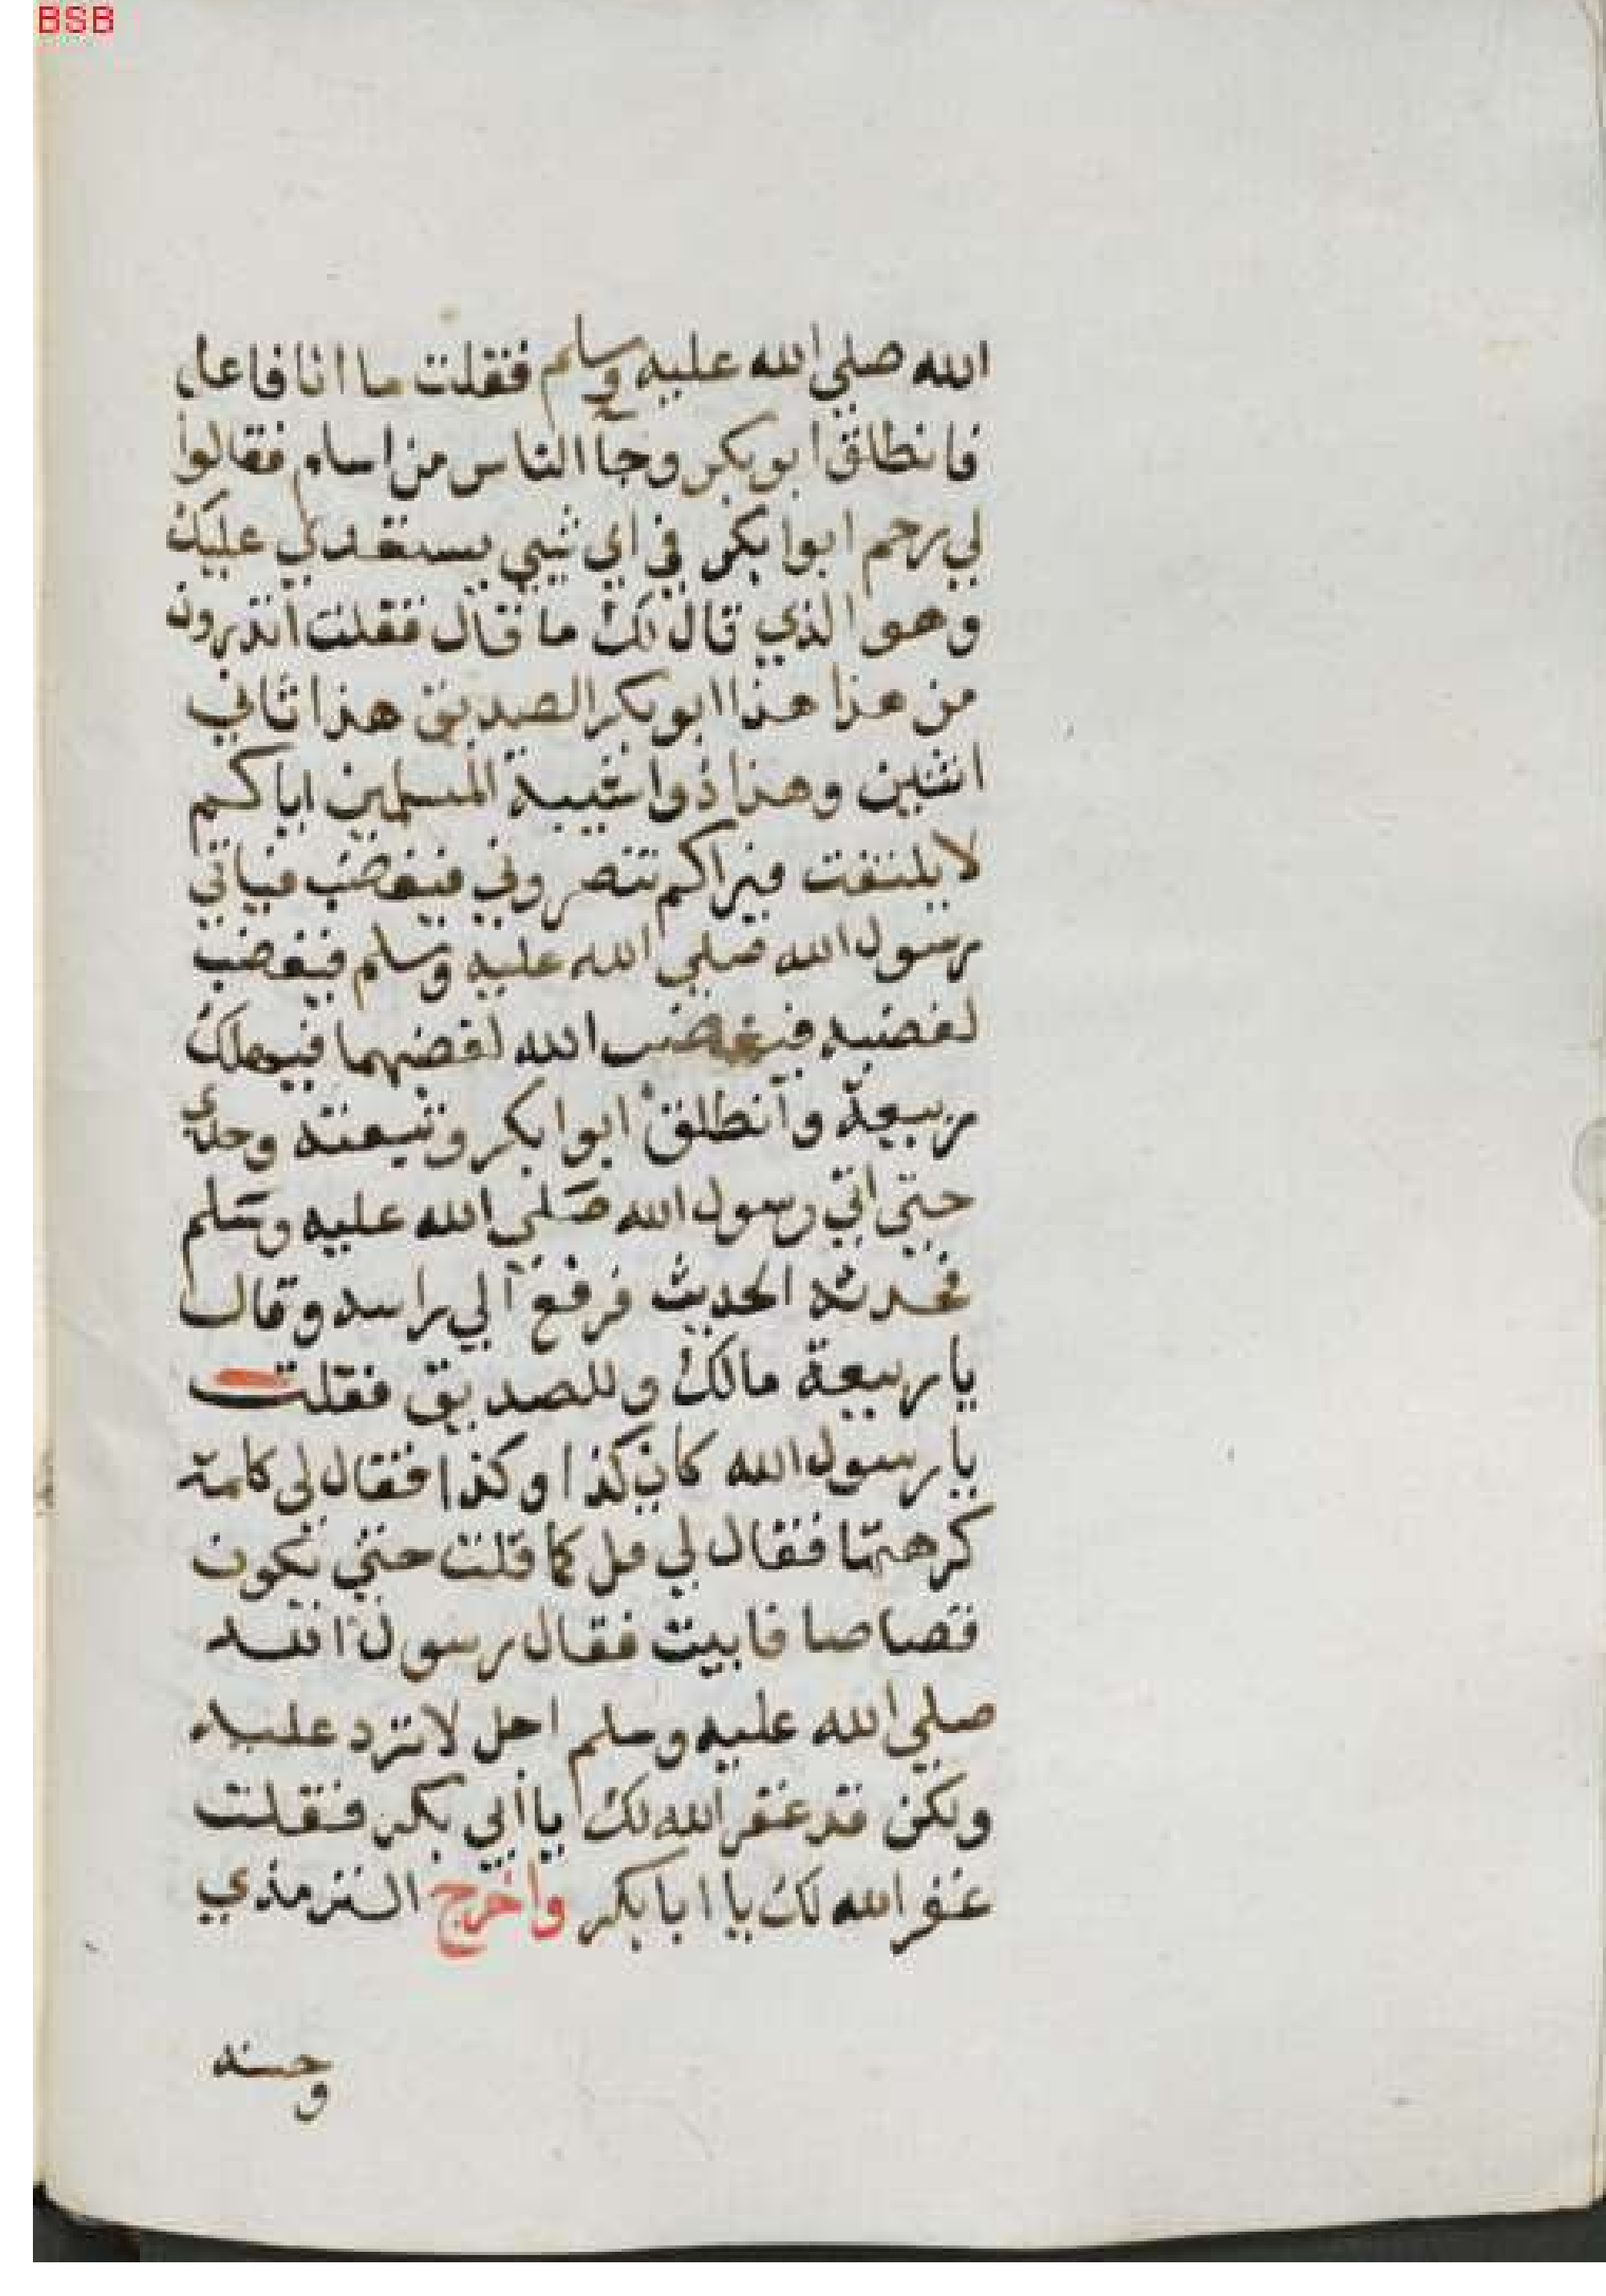 BSB
الله صلي الله عليه وسلم فقلت ما انا فاعل
فانطلق ابو بكر وجآ الناس من اسلم فقالوا
لي رحم ابوا بكر في اي شيي يستعدي عليك
وهو الذي قال لك ما قال فقلت اتدرون
من هذا هذا ابو بكر الصديق هذا ثاني
اثنين وهذا ذوا شيبة المسلمين اياكم
لا يلتفت فيراكم تنصروني فيغضب فياتي
رسول الله صلي الله عليه وسلم فيغضب
لغضبه فيغضب الله لغضبهما فيهلك
ربيعة وانطلق ابوا بكر وتبعته وحدي
حتي اتي رسول الله صلي الله عليه وسلم
فحدثه الحديث فرفع الي راسه وقال
يا ربيعة مالك وللصديق فقلت
يا رسول الله كان كذا وكذا فقال لي كلمة
كرهتها فقال لي قل كما قلت حتي تكون
قصاصا فابيت فقال رسول الله
صلي الله عليه وسلم اجل لا ترد عليه
ولكن قد غفر الله لك يا ابي بكر فقلت
غفر الله لك يا ابا بكر واخرج الترمذي
وحسنه